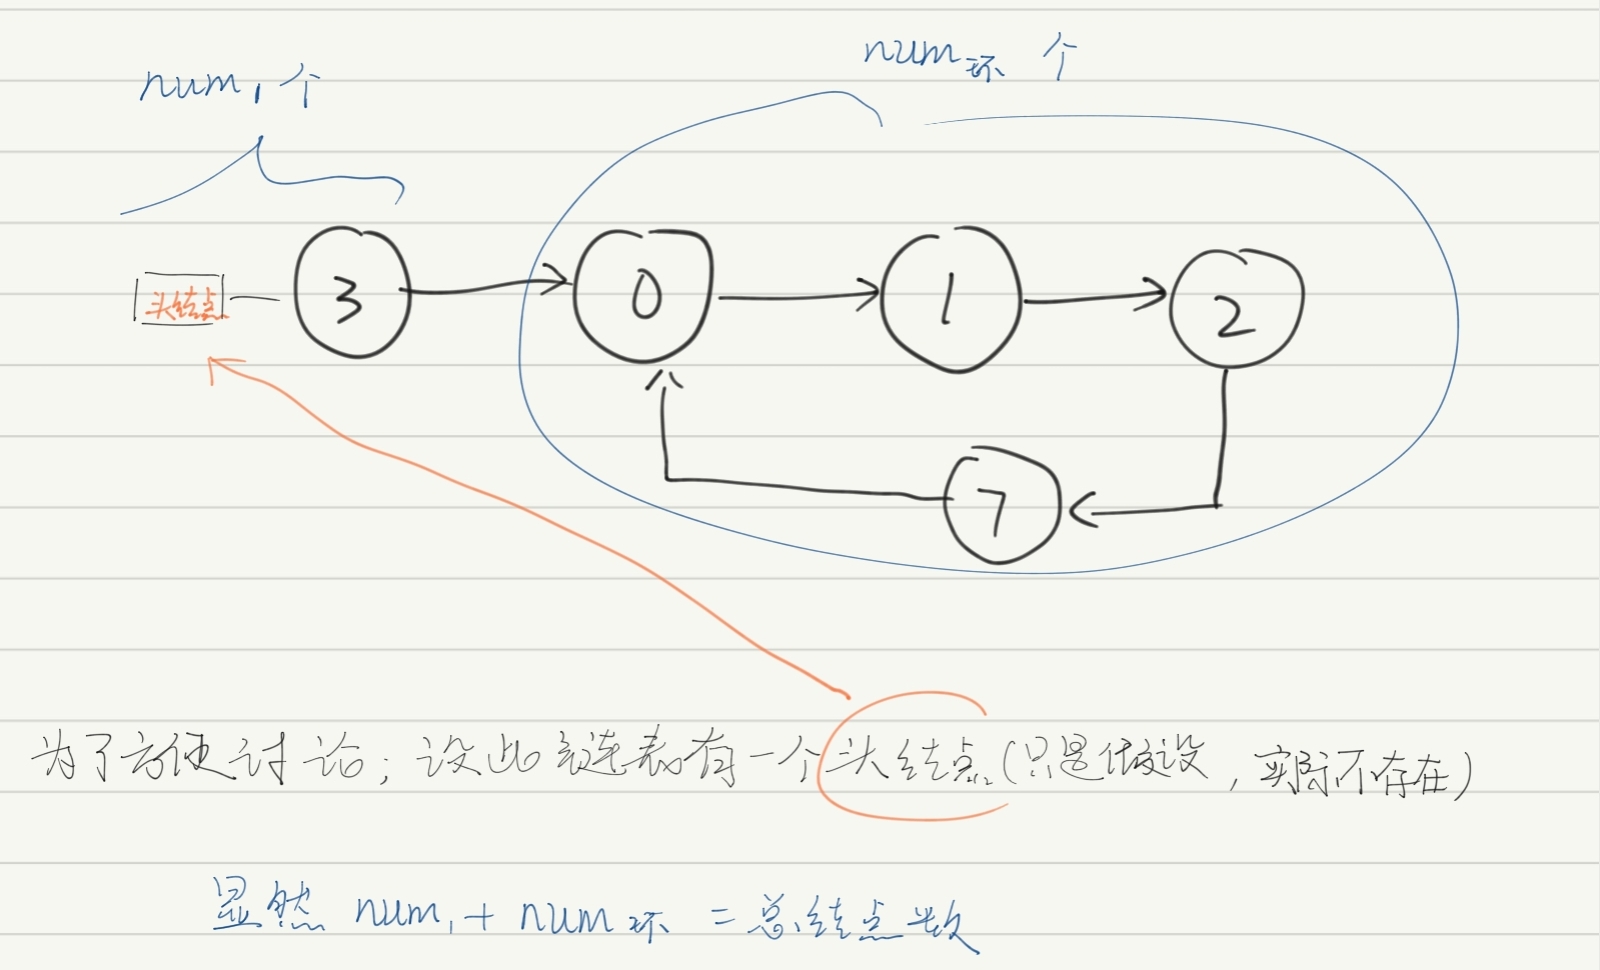 num₁个
num环 个
头结点
3
0
1
2
7
为了方便讨论；设此链表有一个头结点(只是假设，实际不存在)
显然 num₁+ num环 =总结点数